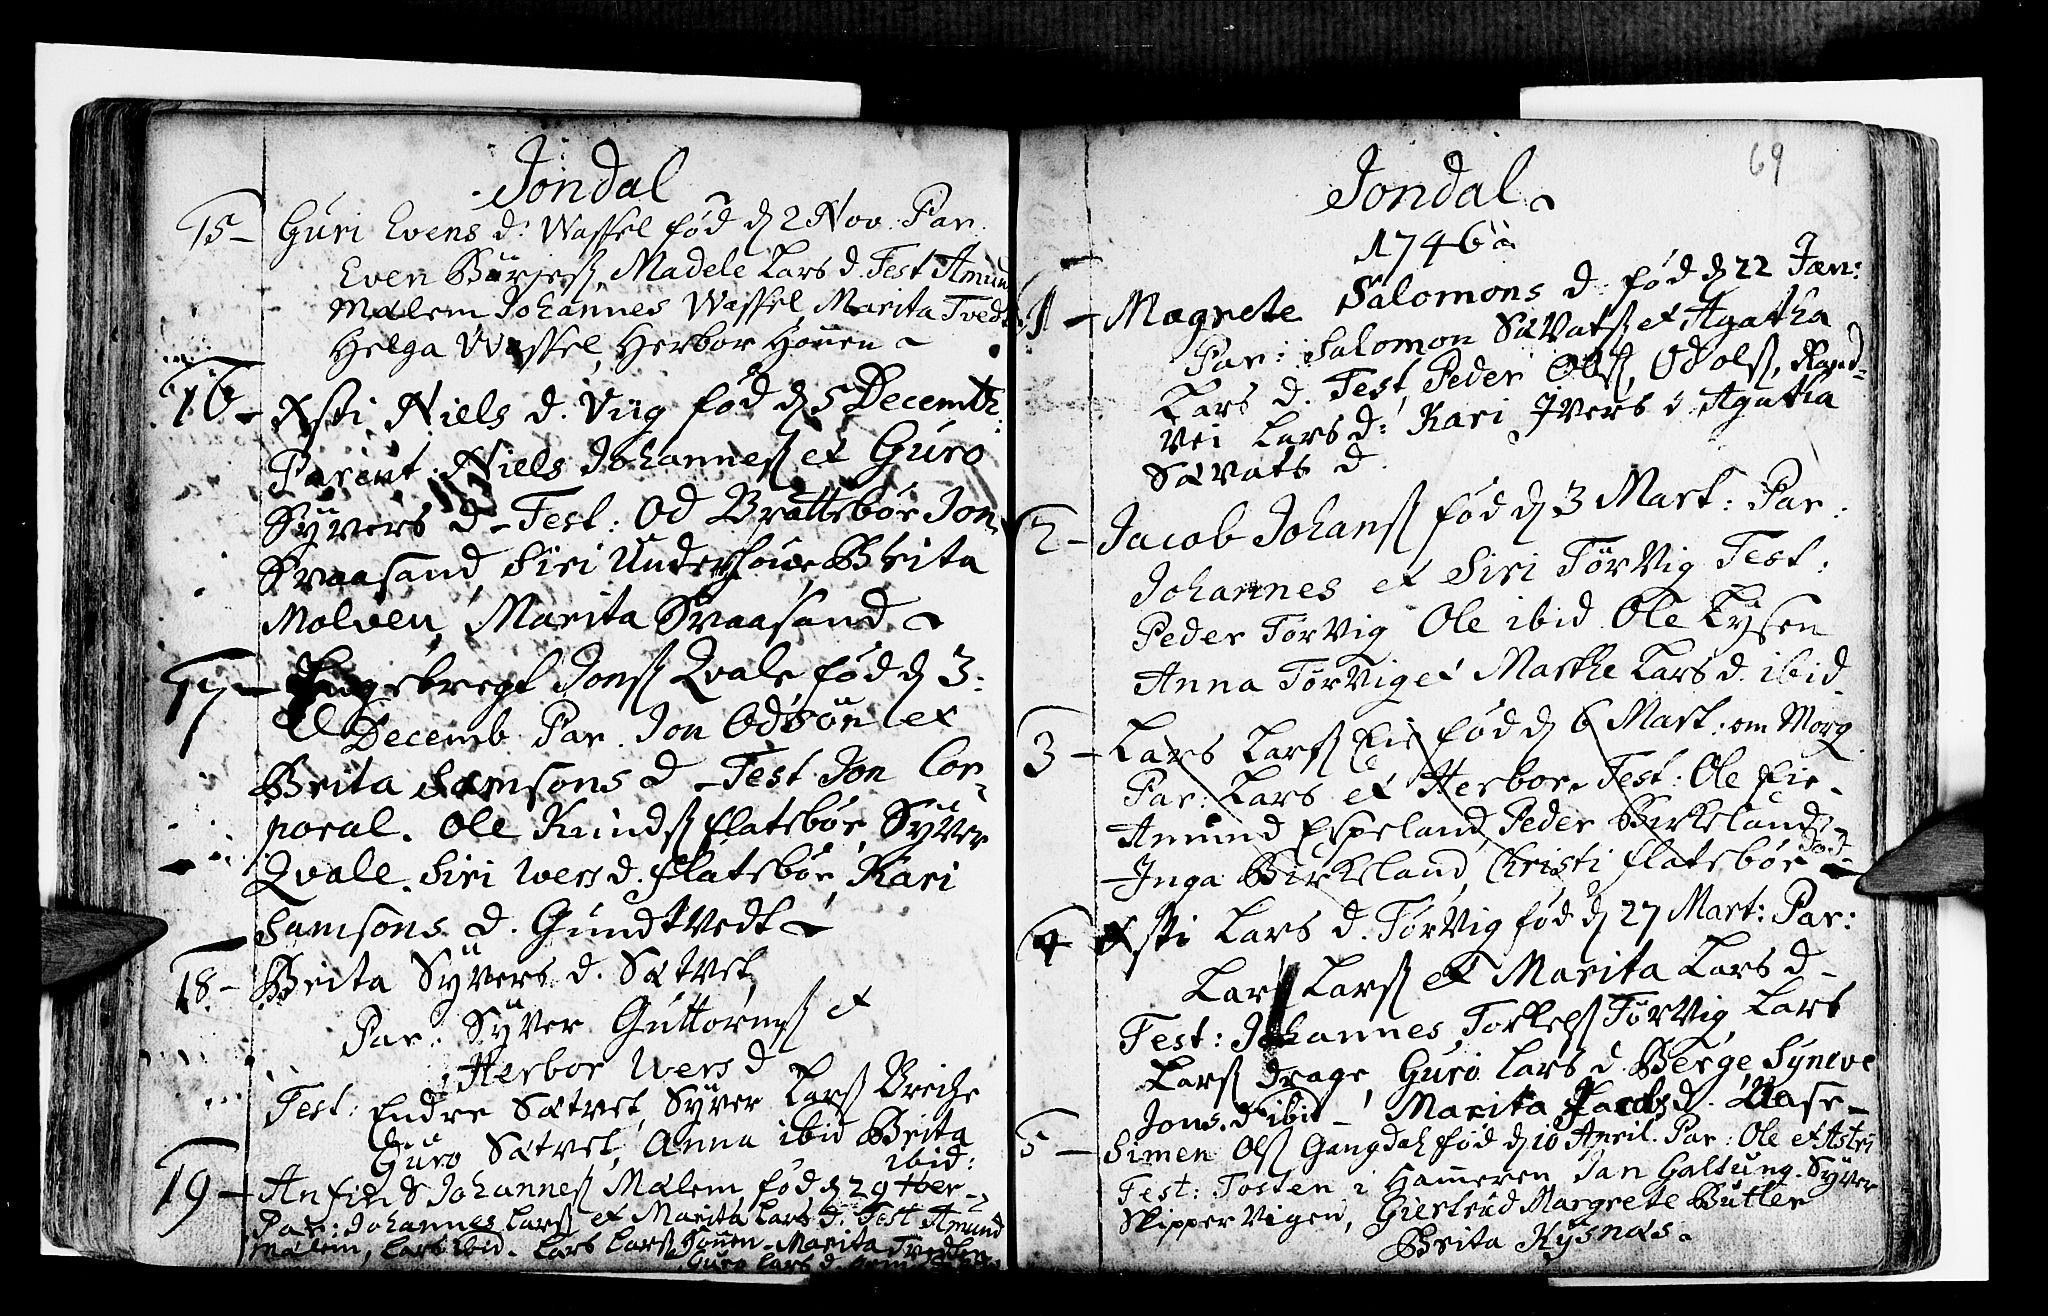 Jondal
15 - Guri Evens d: Wassel fød d 2 Nov. Par.
Even Børjess, Madele Lars d. Test Amun
Malem Johannes Wassel, Marita Tved
Helga Wassel, Herbor Houen
16 - Asti Niels d. Viig fød d 5 Decemb:
Parent: Niels Johanness et Guro
Syvers d - Test: Od Brattebør Jon
Svaasand, Siri Underhoue Brita
Malven, Marita Svaasand
17 - Engebregt Jons Qvale, fød d 3:
Decemb Par. Jon Odsøn et
Brita Samsons d - Test Jon Cor-
poral. Ole Knuds flatebør, Syver
Qvale. Siri Wers d. flatebør, Kari
Samsons d. Gundtvedt
18 - Brita Syvers d. Sætvet
Par. Syver Guttorms et
Herbor Wers d
Test: Endre Sætvet, Syver Lars Breche
Guro Sætvet, Anna ibid Brita
ibid:
19 - Anfind Johanness Malem, fød d 29 tber
Par: Johannes Larss et Marita Lars d. Test Amund
Malem, Lars ibid. Lars Lars Houen - Marita Tvedten
Guro Lars d.
69
Jondal
1746
1 - Magrete Salomons d: fød d 22 Jan:
Par: Salomon Sævats et Agatha
Lars d. Test, Peder Ols, Od Ols, Rand-
vei Lars d: Kari Ivers d Agatha
Sævats d
2 - Jacob Johans fød d 3 Mart: Par:
Johannes et Siri Tørvig Test:
Peder Tørvig Ole ibid Ole Lysen
Anna Tørvig et Marthe Lars d. ibid.
3 - Lars Larss Eie fød d 6 Mart: om Morg.
Par: Lars et Herbor, Test: Ole Eie
Amund Espeland, Peder Birkeland
Inga Birkeland, Christi flatebør død
4 Asti Lars d. Tørvig fød d 27 Mart: Par:
Lars Larss et Marita Lars d -
Test: Johannes, Torkels Tørvig, Lars
Larss Drage, Guro Lars d Berge, Syneve
Jons. d ibid - Marita Jacobs d. Aase -
5 - Simen Ols Gangdal fød d 10 April. Par: Ole et Astri
Test: Tosten i Hameren, Jan Galtung. Syver
Skippervigen, Giertrud Margrete Butler
Brita Rysnæs.